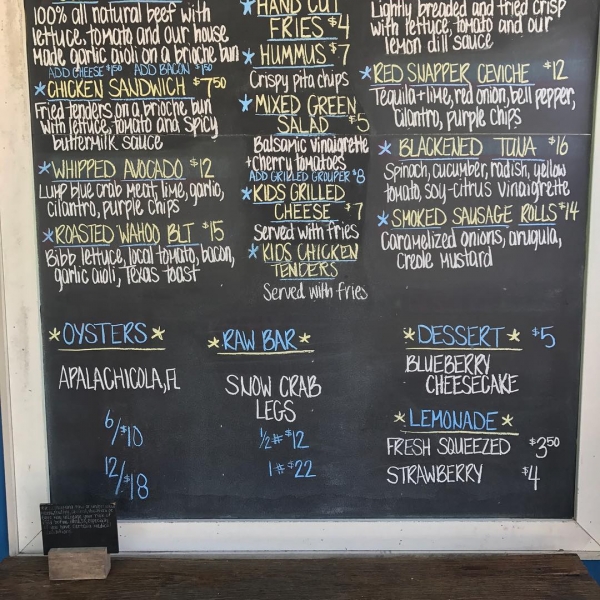 100% all natural beef with
lettuce, tomato and our house
Made garlic aioli on a brioche bun
ADD CHEESE $1.50 ADD BACON $1.50
*CHICKEN SANDWICH $7.50
Fried tenders on a brioche bun
with lettuce, tomato and spicy
buttermilk sauce
*WHIPPED AVOCADO $12
Lump blue crab meat, lime, garlic,
cilantro, purple chips
*ROASTED WAHOO BLT $15
Bibb lettuce, local tomato, bacon,
garlic aioli, Texas toast
*HAND CUT
FRIES $4
*HUMMUS $7
Crispy pita chips
*MIXED GREEN
SALAD $5
Balsamic vinaigrette
+cherry tomatoes
ADD GRILLED GROUPER $8
*KIDS GRILLED
CHEESE $7
Served with fries
*KIDS CHICKEN
TENDERS
Served with fries
Lightly breaded and fried crisp
with lettuce, tomato and our
lemon dill sauce
*RED SNAPPER CEVICHE $12
Tequila+lime, red onion, bell pepper,
Cilantro, purple chips
*BLACKENED TUNA $16
Spinach, cucumber, radish, yellow
tomato, soy-citrus vinaigrette
*SMOKED SAUSAGE ROLLS $14
Caramelized onions, arugula,
Creole Mustard
*OYSTERS*
APALACHICOLA, FL
6/$10
12/$18
*RAW BAR*
SNOW CRAB
LEGS
1/2# $12
1# $22
*DESSERT* $5
BLUEBERRY
CHEESECAKE
*LEMONADE*
FRESH SQUEEZED $3.50
STRAWBERRY $4